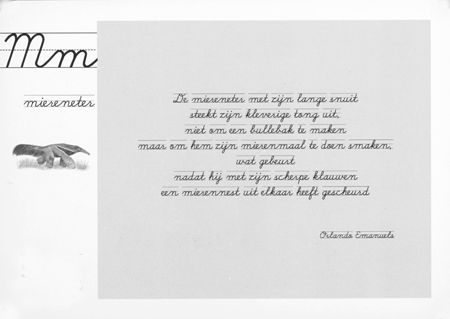 Mm
miereneter
De miereneter met zijn lange snuit
steekt zijn kleverige tong uit;
niet om een bullebak te maken
maar om hem zijn mierenmaal te doen smaken,
wat gebeurt
nadat hij met zijn scherpe klauwen
een mierennest uit elkaar heeft gescheurd
Orlando Emanuels